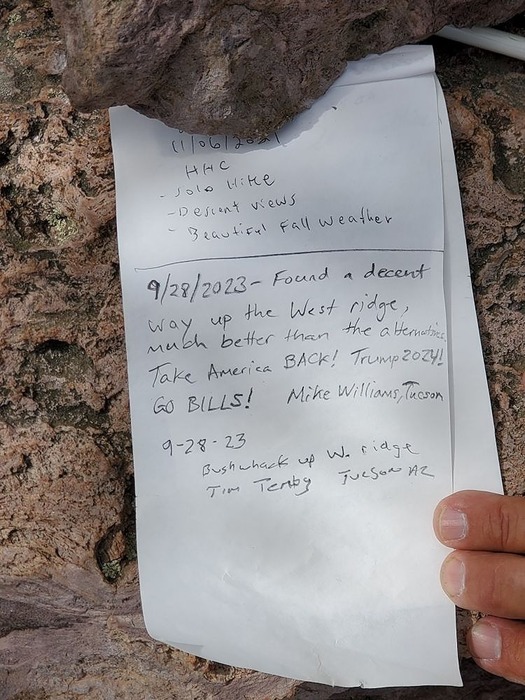 11/06/2021
HHC
- Solo Hike
- Descent views
- Beautiful Fall Weather
9/28/2023 - Found a decent
way up the West ridge,
much better than the alternatives.
Take America BACK! Trump 2024!
GO BILLS! Mike Williams, Tucson
9-28-23
Bushwhack up W. ridge
Tim Tucson AZ